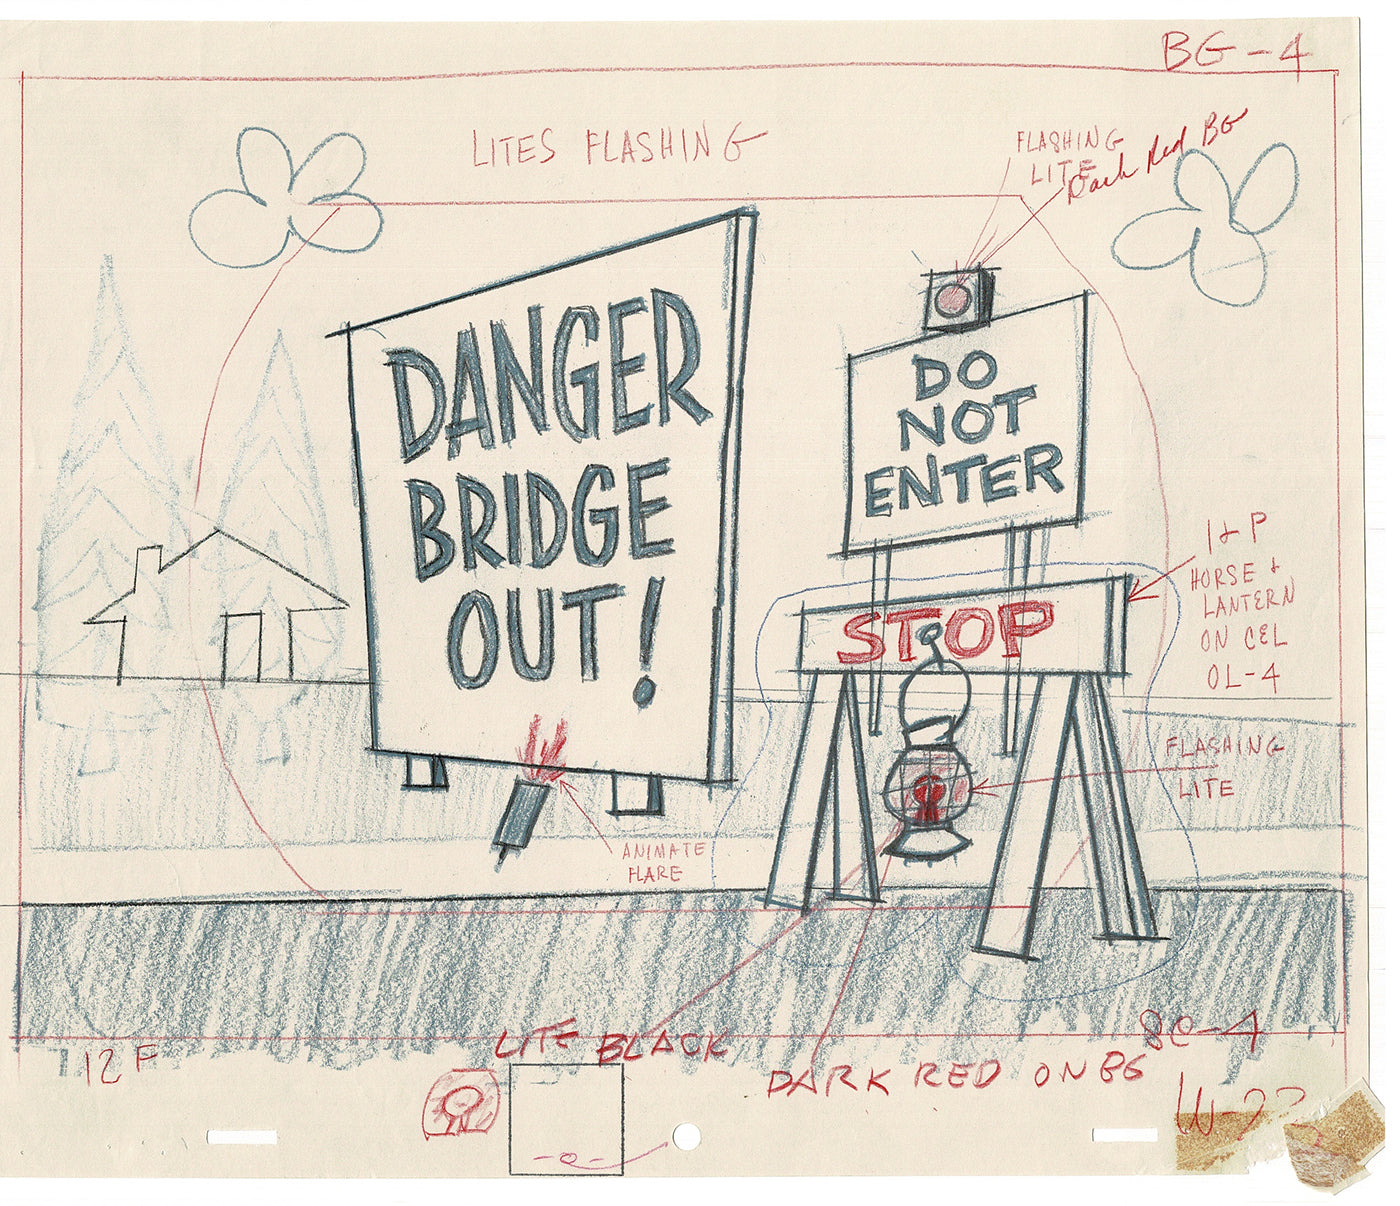 BG-4
LITES FLASHING
FLASHING
LITE
Dark Red BG
DANGER
BRIDGE
OUT!
DO
NOT
ENTER
STOP
I & P
HORSE &
LANTERN
ON CEL
OL-4
FLASHING
LITE
ANIMATE
FLARE
SC-4
12 F
LITE BLACK
DARK RED ON BG